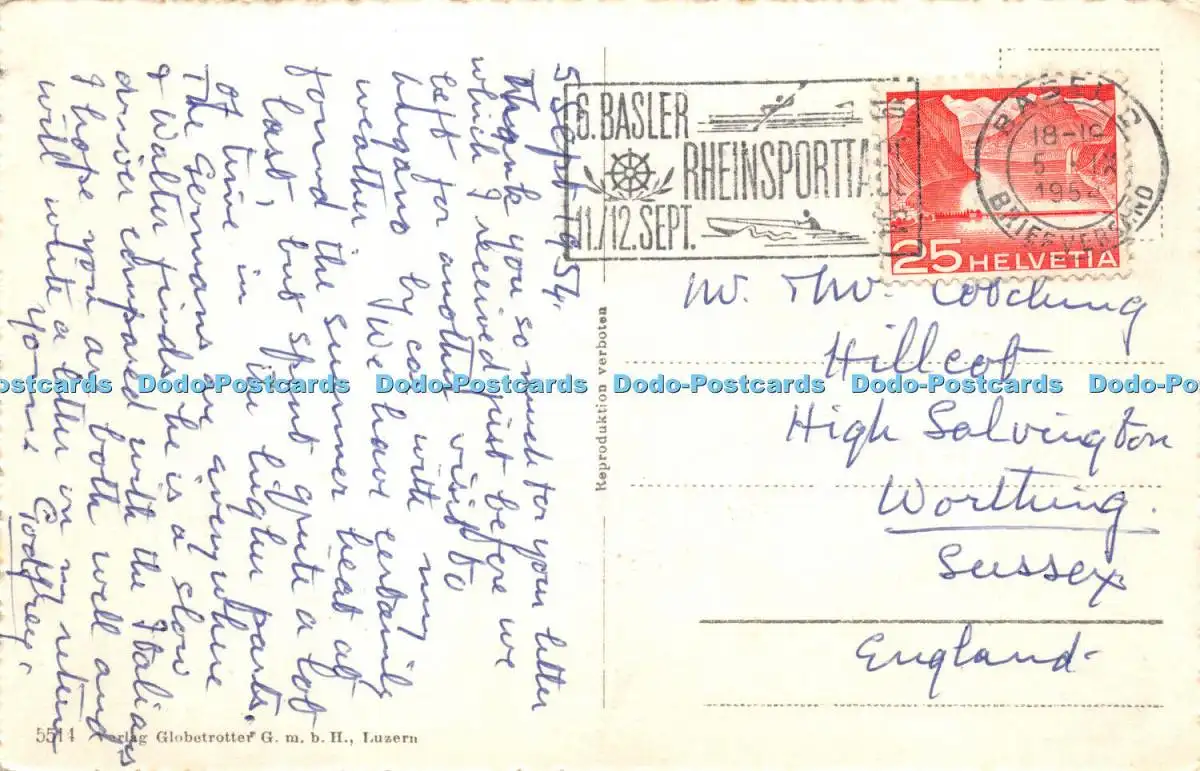 5 Sept 1954.
Thank you so much for your letter
which I received just before we
left for another visit to
Lugano by car with my
weather We have certainly
found the summer heat at
last, but spent quite a lot
of time in the higher parts.
The Germans are everywhere
& Walter finds he is a slow
driver compared with the Italians
I hope you are both well and
will write a letter on my return
Yours Godfrey.
6. BASLER
RHEINSPORTTAG
11./12. SEPT.
BASEL 2
18-19
5
1954
BRIEFVERSAND
25 HELVETIA
Hillcot
High Salvington
Worthing.
Sussex
England-
Reproduktion verboten
Dodo-Postcards Dodo-Postcards Dodo-Postcards Dodo-Postcards Dodo-Postcards Dodo-Postcards
5514 Verlag Globetrotter G. m. b. H., Luzern